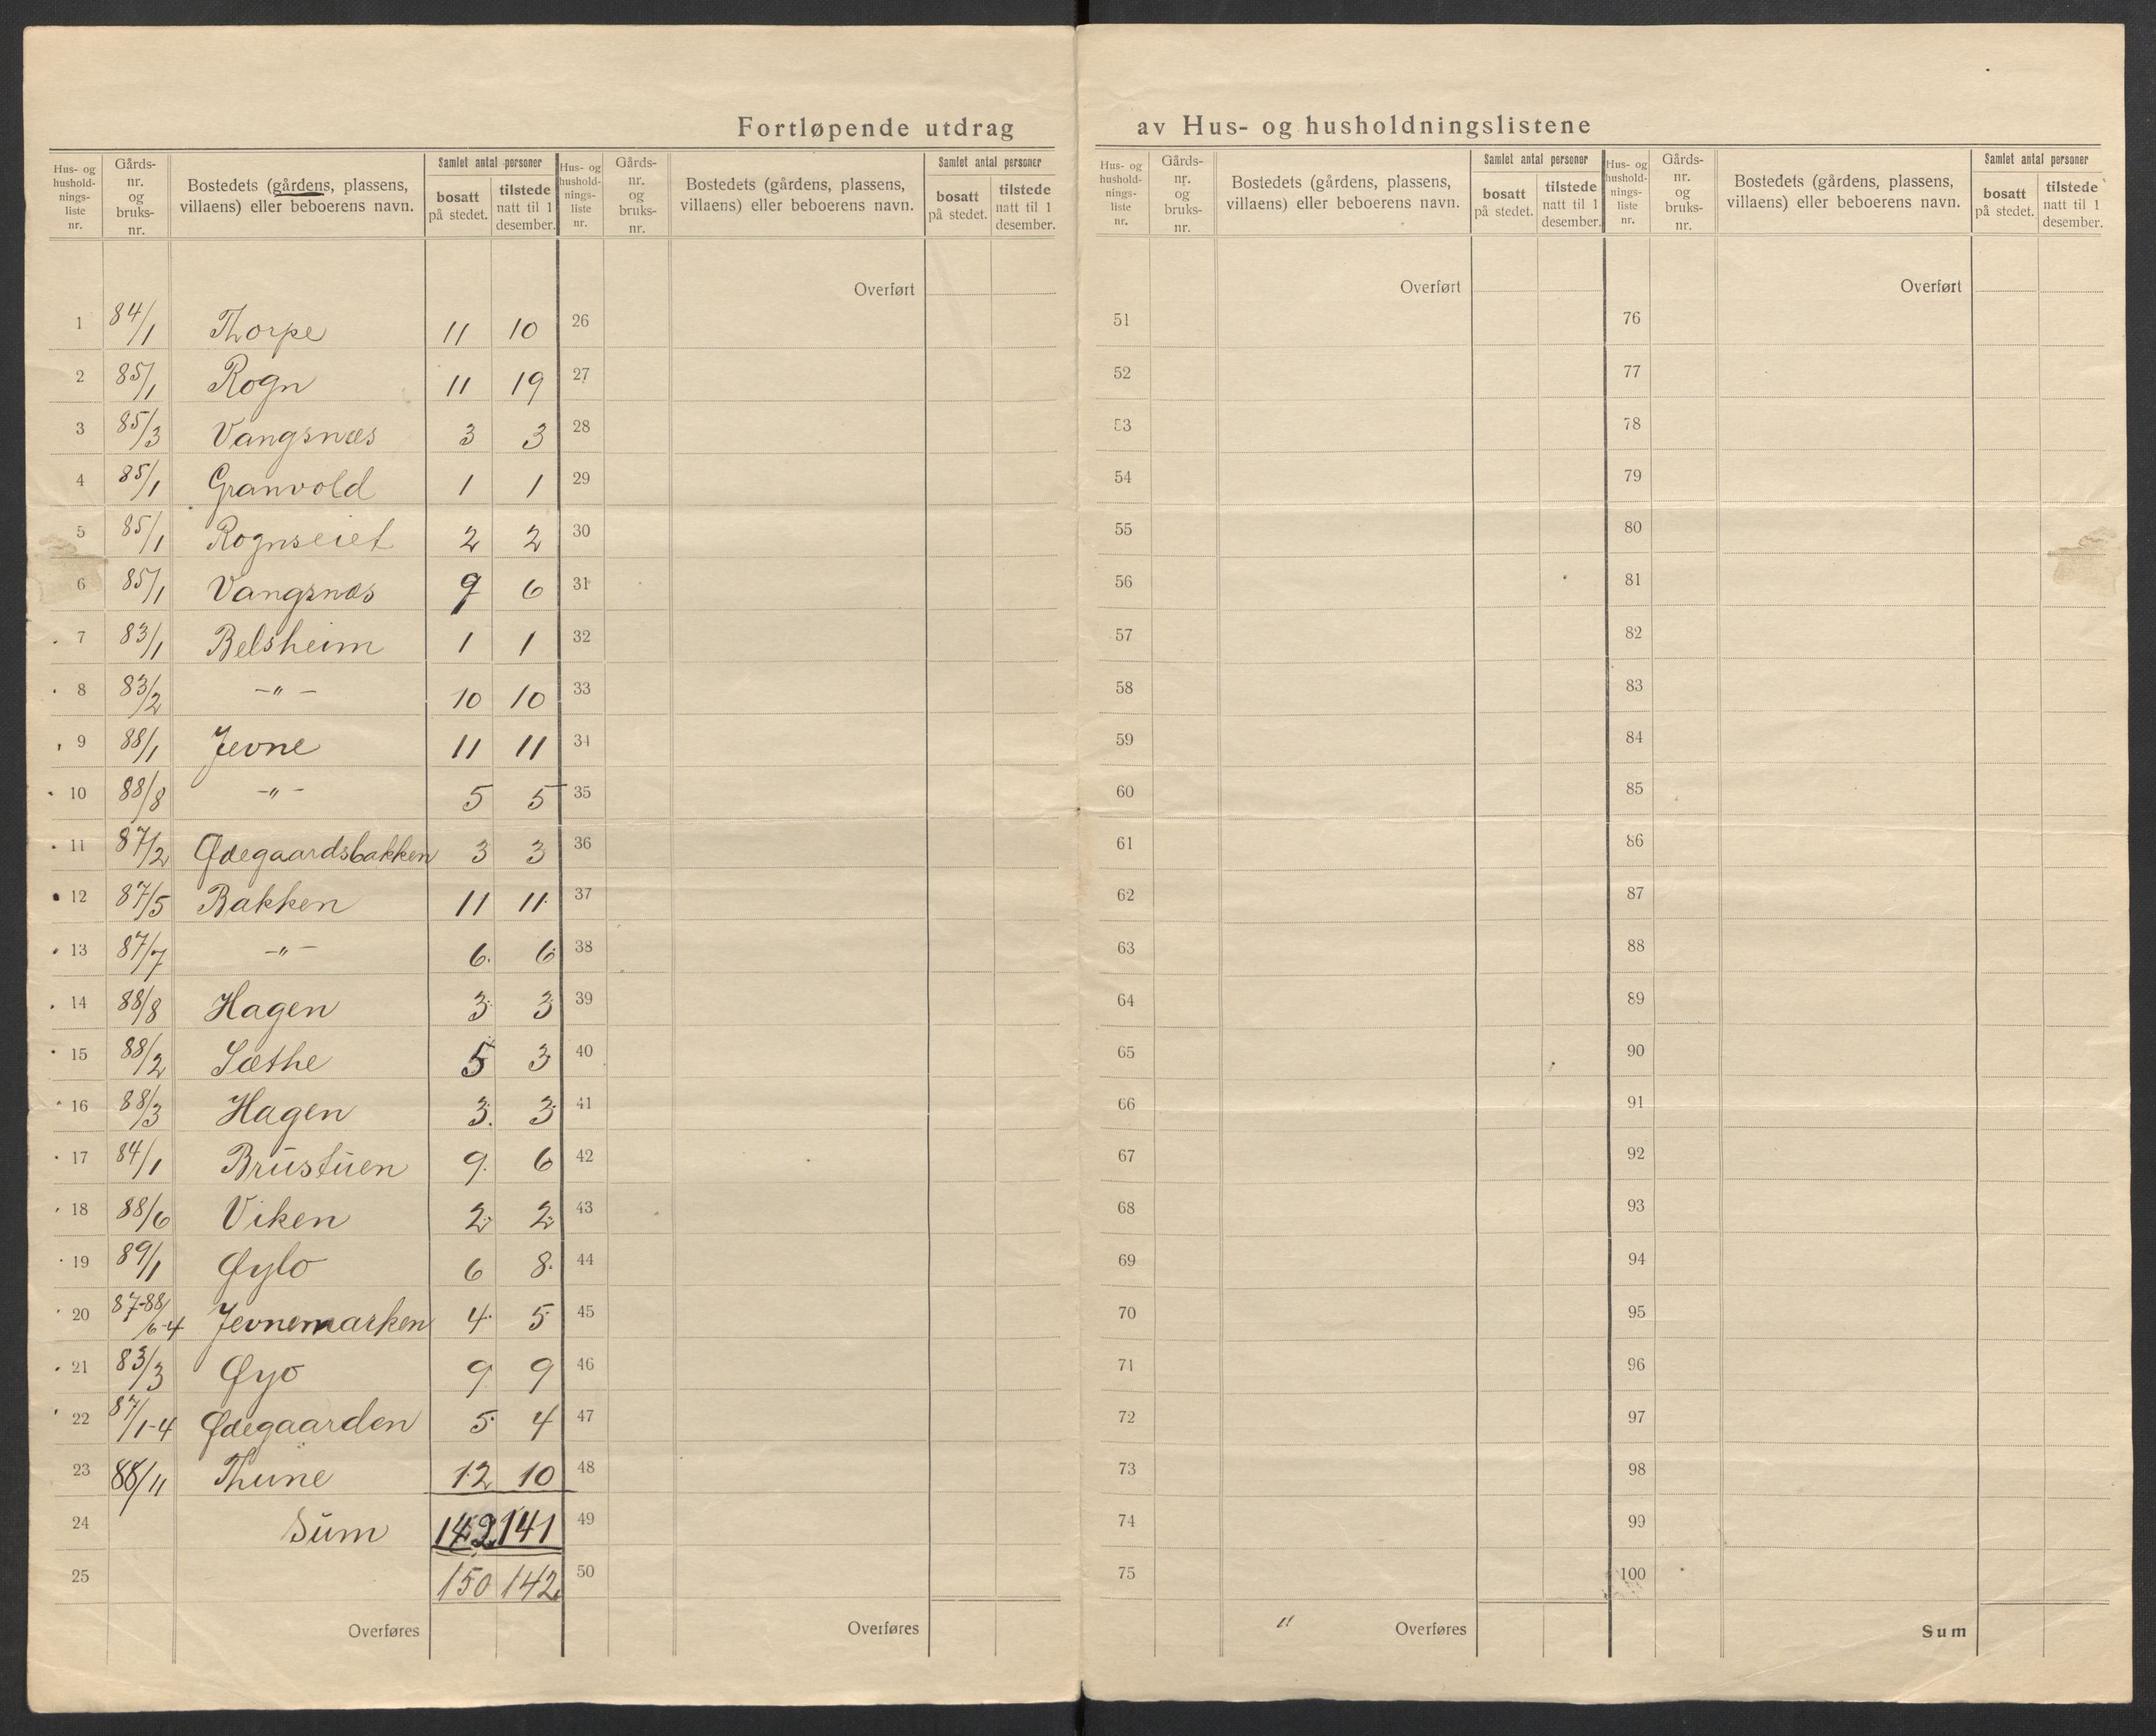 Fortløpende utdrag av Hus- og husholdningslistene
Hus- og hushold-nings-liste nr. | Gårds-nr. og bruks-nr. | Bostedets (gårdens, plassens, villaens) eller beboerens navn. | Samlet antal personer | bosatt på stedet. | tilstede natt til 1 desember.
1 84/1 Thorpe 11 10
2 85/1 Rogn 11 19
3 85/3 Vangsnæs 3 3
4 85/1 Granvold 1 1
5 85/1 Rognseiet 2 2
6 85/1 Vangsnæs 9 6
7 83/1 Belsheim 1 1
8 83/2 -"- 10 10
9 88/1 Jevne 11 11
10 88/8 -"- 5 5
11 87/2 Ødegaardsbakken 3 3
12 87/5 Bakken 11 11
13 87/7 -"- 6 6
14 88/8 Hagen 3 3
15 88/2 Sæthe 5 3
16 88/3 Hagen 3 3
17 84/1 Brustuen 9 6
18 88/6 Viken 2 2
19 89/1 Øylo 6 8
20 87-88/6-4 Jevnemarken 4 5
21 83/3 Øyo 9 9
22 87/1-4 Ødegaarden 5 4
23 88/11 Thune 12 10
24 Sum 142 141
25 150 142
Overføres
Hus- og hushold-nings-liste nr. | Gårds-nr. og bruks-nr. | Bostedets (gårdens, plassens, villaens) eller beboerens navn. | Samlet antal personer | bosatt på stedet. | tilstede natt til 1 desember.
Overført
26
27
28
29
30
31
32
33
34
35
36
37
38
39
40
41
42
43
44
45
46
47
48
49
50
Overføres
Hus- og hushold-nings-liste nr. | Gårds-nr. og bruks-nr. | Bostedets (gårdens, plassens, villaens) eller beboerens navn. | Samlet antal personer | bosatt på stedet. | tilstede natt til 1 desember.
Overført
51
52
53
54
55
56
57
58
59
60
61
62
63
64
65
66
67
68
69
70
71
72
73
74
75
" Overføres
Hus- og hushold-nings-liste nr. | Gårds-nr. og bruks-nr. | Bostedets (gårdens, plassens, villaens) eller beboerens navn. | Samlet antal personer | bosatt på stedet. | tilstede natt til 1 desember.
Overført
76
77
78
79
80
81
82
83
84
85
86
87
88
89
90
91
92
93
94
95
96
97
98
99
100
Sum